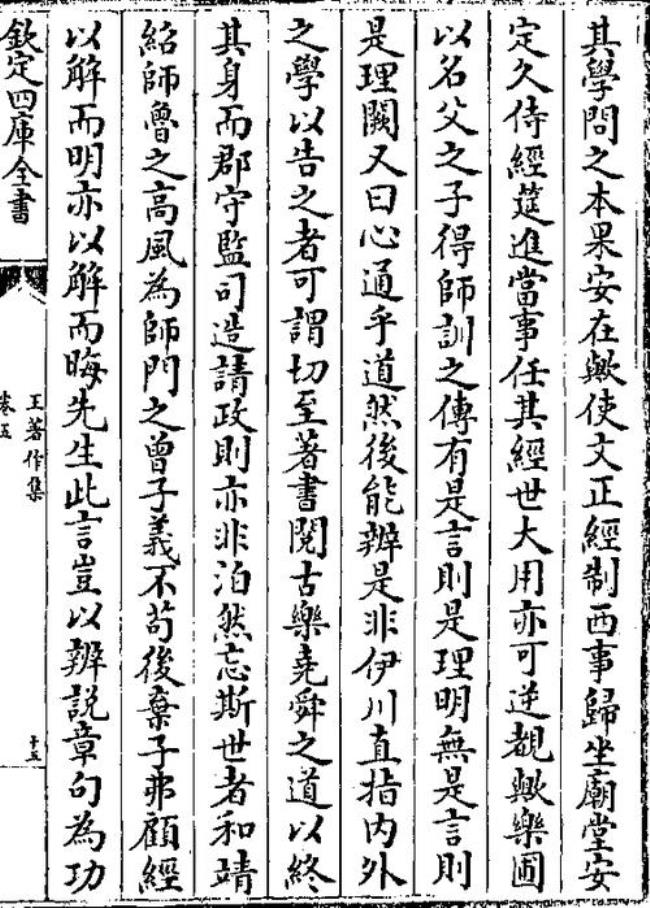 其學問之本果安在歟使文正經制西事歸坐廟堂安
定久侍經筵進當事任其經世大用亦可逆覩歟樂圃
以名父之子得師訓之傳有是言則是理明無是言則
是理闕又曰心通乎道然後能辨是非伊川直指内外
之學以告之者可謂切至著書閱古樂堯舜之道以終
其身而郡守監司造請政則亦非泊然忘斯世者和靖
紹師魯之高風為師門之曾子義不苟後棄子弗顧經
以解而明亦以解而晦先生此言豈以辨説章句為功
欽定四庫全書
王著作集
卷五
十五